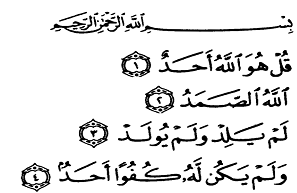 بِسْمِ اللَّهِ الرَّحْمَٰنِ الرَّحِيمِ
قُلْ هُوَ اللَّهُ أَحَدٌ ١
اللَّهُ الصَّمَدُ ٢
لَمْ يَلِدْ وَلَمْ يُولَدْ ٣
وَلَمْ يَكُن لَّهُۥ كُفُوًا أَحَدٌۢ ٤